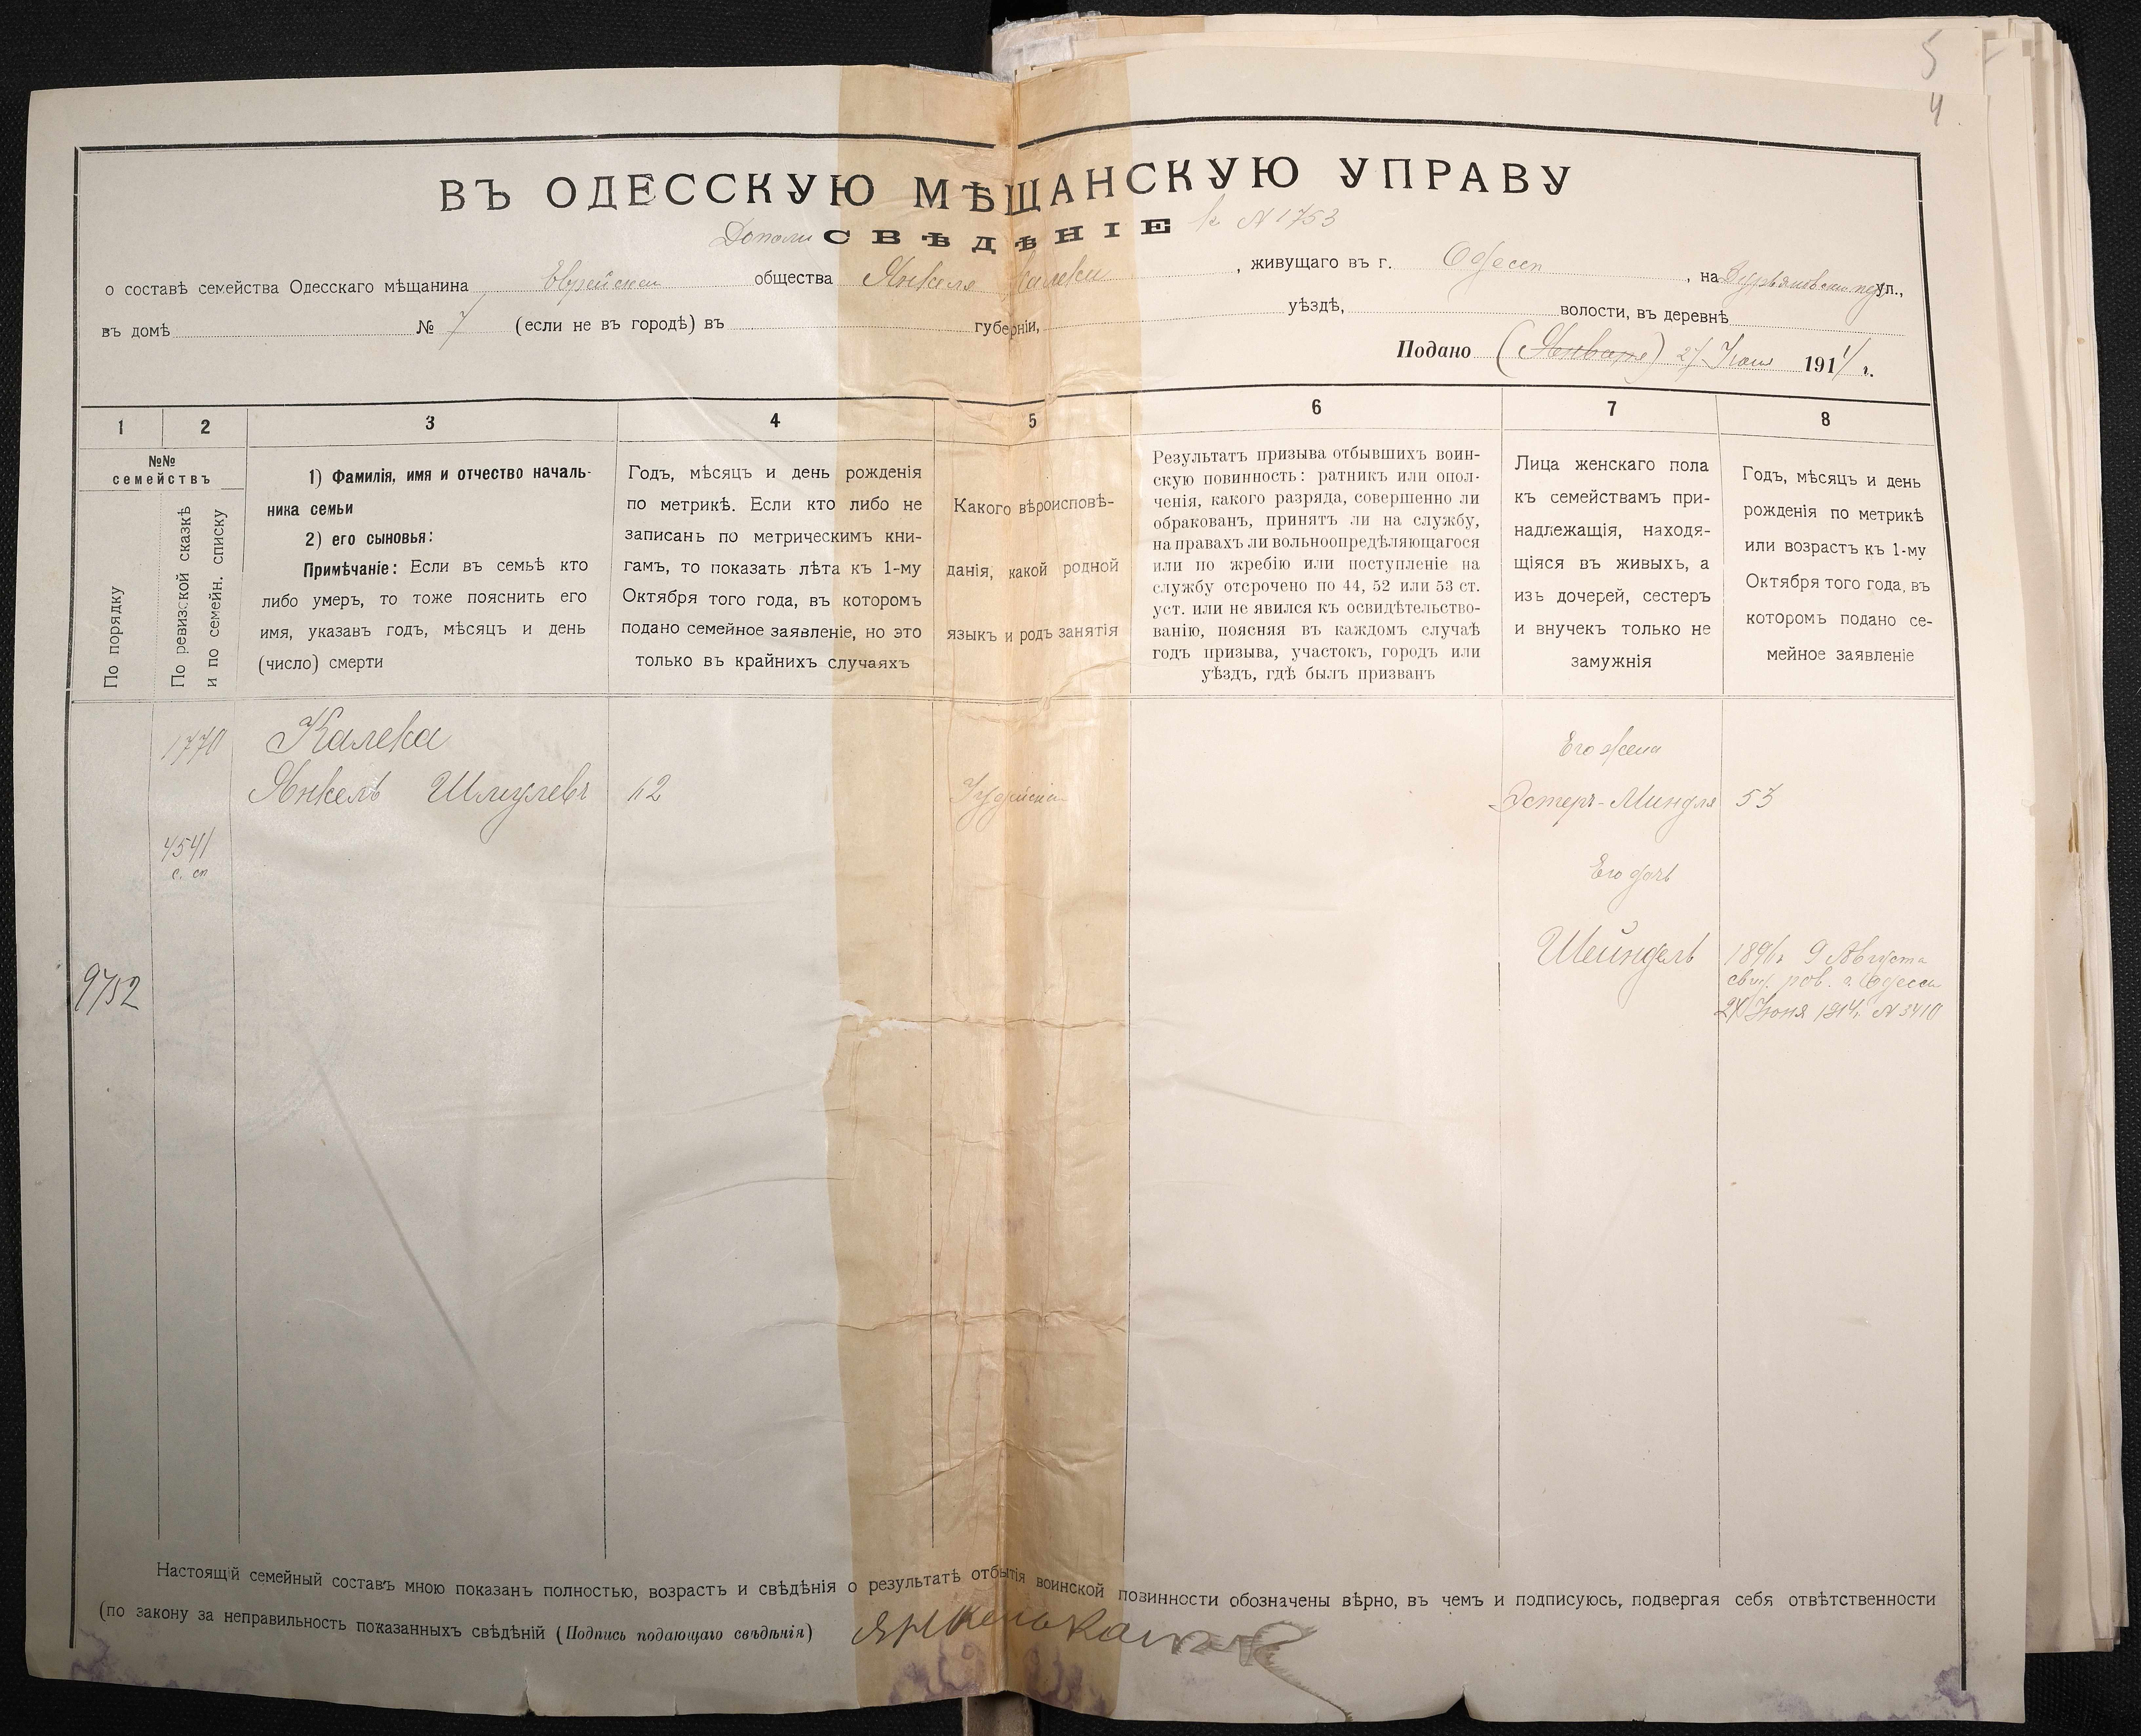 5
4
ВЪ ОДЕССКУЮ МѢЩАНСКУЮ УПРАВУ
СВѢДѢНІЕ к N 1753
о составѣ семейства Одесскаго мѣщанина Еврейскаго общества Янкеля Калеки, живущаго въ г. Одессѣ, на ул.,
въ домѣ № 7 (если не въ городѣ) въ губерніи, уѣздѣ, волости, въ деревнѣ
Подано (Января) 27 Іюня 1914 г.
1 2 3 4 5 6 7 8
№№
семействъ
По порядку
По ревизской сказкѣ
и по семейн. списку
1) Фамилія, имя и отчество началь-
ника семьи
2) его сыновья:
Примѣчаніе: Если въ семьѣ кто
либо умеръ, то тоже пояснить его
имя, указавъ годъ, мѣсяцъ и день
(число) смерти
Годъ, мѣсяцъ и день рожденія
по метрикѣ. Если кто либо не
записанъ по метрическимъ кни-
гамъ, то показать лѣта къ 1-му
Октября того года, въ которомъ
подано семейное заявленіе, но это
только въ крайнихъ случаяхъ
Какого вѣроисповѣ-
данія, какой родной
языкъ и родъ занятія
Результатъ призыва отбывшихъ воин-
скую повинность: ратникъ или опол-
ченія, какого разряда, совершенно ли
обракованъ, принятъ ли на службу,
на правахъ ли вольноопредѣляющагося
или по жребію или поступленіе на
службу отсрочено по 44, 52 или 53 ст.
уст. или не явился къ освидѣтельство-
ванію, поясняя въ каждомъ случаѣ
годъ призыва, участокъ, городъ или
уѣздъ, гдѣ былъ призванъ
Лица женскаго пола
къ семействамъ при-
надлежащія, находя-
щіяся въ живыхъ, а
изъ дочерей, сестеръ
и внучекъ только не
замужнія
Годъ, мѣсяцъ и день
рожденія по метрикѣ
или возрастъ къ 1-му
Октября того года, въ
которомъ подано се-
мейное заявленіе
1770 Калека Его жена
Янкель Шмулевъ 62 Іудейскаго Эстеръ-Миндля 53
4541
с. сп
Его дочь
Шейндель 1896 г. 9 Августа
9752
свид. рав. г. Одессы
27 Іюня 1914 г. N 3410
Настоящій семейный составъ мною показанъ полностью, возрастъ и свѣдѣнія о результатѣ отбытія воинской повинности обозначены вѣрно, въ чемъ и подписуюсь, подвергая себя отвѣтственности
(по закону за неправильность показанныхъ свѣдѣній (Подпись подающаго свѣдѣнія) Янкель Калека